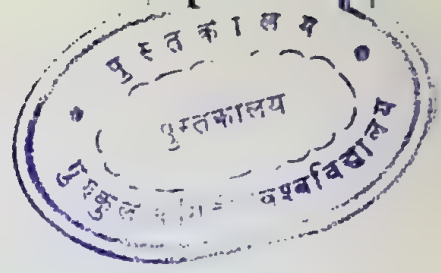 पुस्तकालय
पुस्तकालय
गुरुकुल विश्वविद्यालय